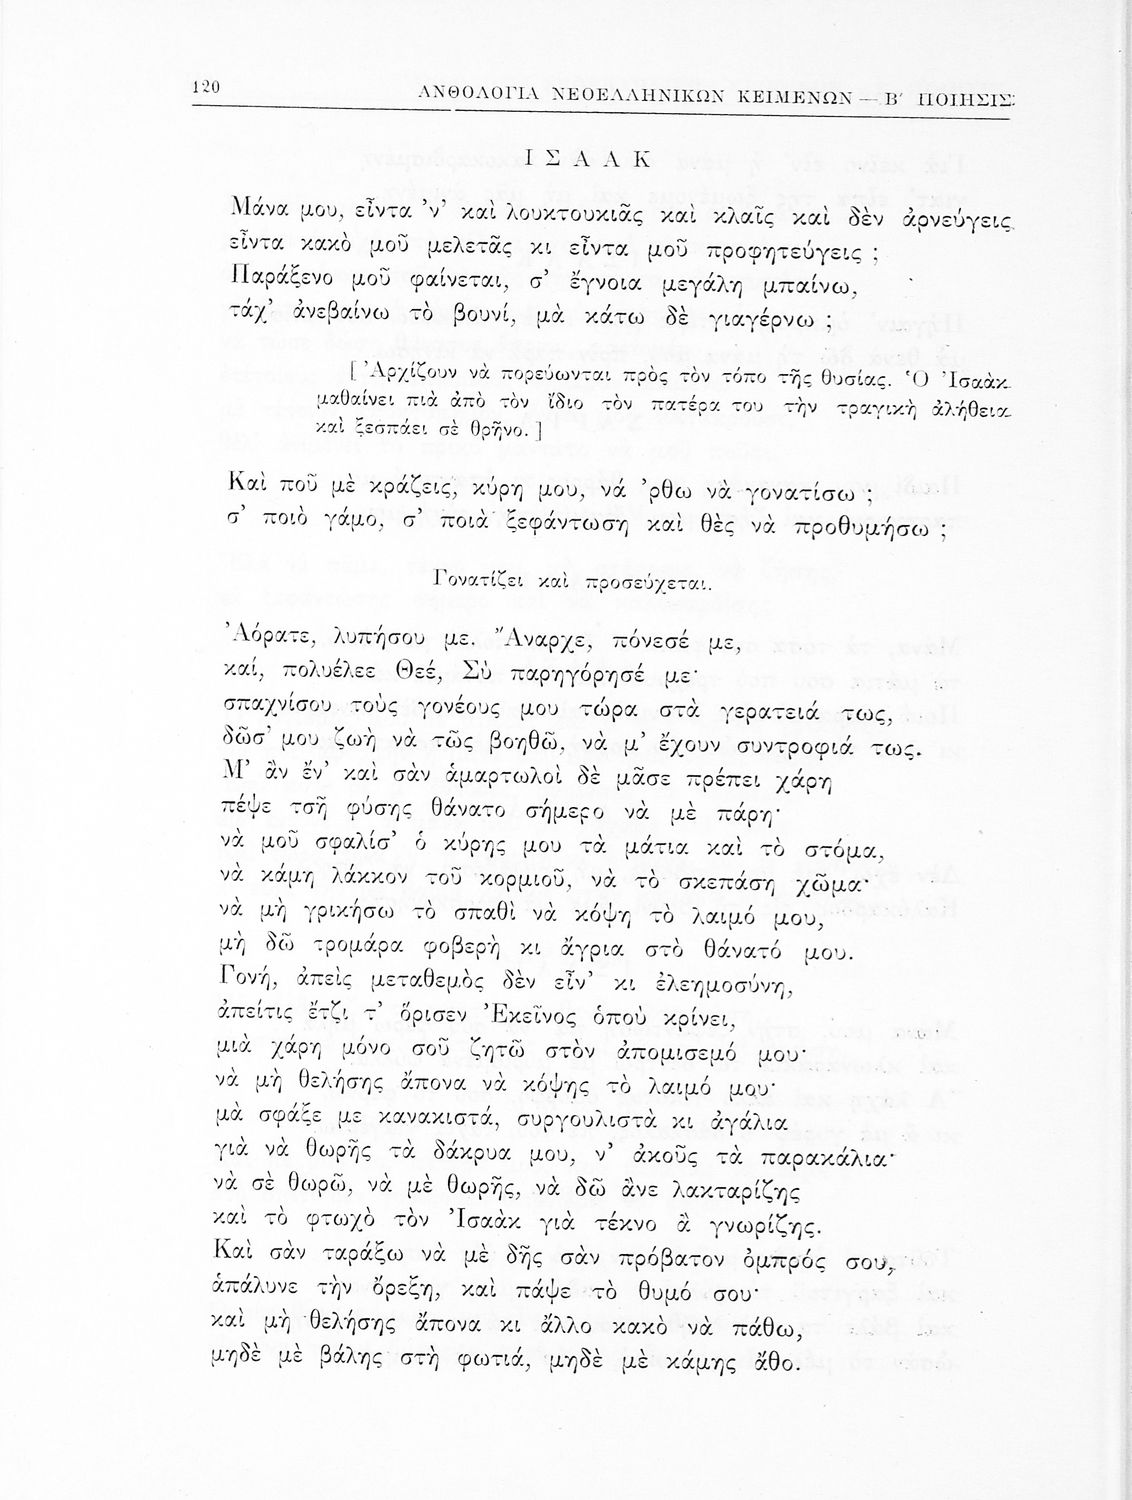 120
ΑΝΘΟΛΟΓΙΑ ΝΕΟΕΛΛΗΝΙΚΩΝ ΚΕΙΜΕΝΩΝ — Β′ ΠΟΙΗΣΙΣ
ΙΣΑΑΚ
Μάνα μου, εἶντα ’ν’ καὶ λουκτουκιᾶς καὶ κλαῖς καὶ δὲν ἀρνεύγεις
εἶντα κακὸ μοῦ μελετᾶς κι εἶντα μοῦ προφητεύγεις ;
Παράξενο μοῦ φαίνεται, σ’ ἔγνοια μεγάλη μπαίνω,
τάχ’ ἀνεβαίνω τὸ βουνί, μὰ κάτω δὲ γιαγέρνω ;
[ Ἀρχίζουν νὰ πορεύωνται πρὸς τὸν τόπο τῆς θυσίας. Ὁ Ἰσαὰκ
μαθαίνει πιὰ ἀπὸ τὸν ἴδιο τὸν πατέρα του τὴν τραγικὴ ἀλήθεια
καὶ ξεσπάει σὲ θρῆνο. ]
Καὶ ποῦ μὲ κράζεις, κύρη μου, νά ’ρθω νὰ γονατίσω ;
σ’ ποιὸ γάμο, σ’ ποιὰ ξεφάντωση καὶ θὲς νὰ προθυμήσω ;
Γονατίζει καὶ προσεύχεται.
Ἀόρατε, λυπήσου με. Ἄναρχε, πόνεσέ με,
καί, πολυέλεε Θεέ, Σὺ παρηγόρησέ με·
σπαχνίσου τοὺς γονέους μου τώρα στὰ γερατειά τως,
δῶσ’ μου ζωὴ νὰ τῶς βοηθῶ, νὰ μ’ ἔχουν συντροφιά τως.
Μ’ ἂν ἔν’ καὶ σὰν ἁμαρτωλοὶ δὲ μᾶσε πρέπει χάρη
πέψε τσῆ φύσης θάνατο σήμερο νὰ μὲ πάρη·
νὰ μοῦ σφαλίσ’ ὁ κύρης μου τὰ μάτια καὶ τὸ στόμα,
νὰ κάμη λάκκον τοῦ κορμιοῦ, νὰ τὸ σκεπάση χῶμα·
νὰ μὴ γρικήσω τὸ σπαθὶ νὰ κόψη τὸ λαιμό μου,
μὴ δῶ τρομάρα φοβερὴ κι ἄγρια στὸ θάνατό μου.
Γονή, ἀπεὶς μεταθεμὸς δὲν εἶν’ κι ἐλεημοσύνη,
ἀπείτις ἔτζι τ’ ὅρισεν Ἐκεῖνος ὁποὺ κρίνει,
μιὰ χάρη μόνο σοῦ ζητῶ στὸν ἀπομισεμό μου·
νὰ μὴ θελήσης ἄπονα νὰ κόψης τὸ λαιμό μου·
μὰ σφάξε με κανακιστά, συργουλιστὰ κι ἀγάλια
γιὰ νὰ θωρῆς τὰ δάκρυα μου, ν’ ἀκοῦς τὰ παρακάλια·
νὰ σὲ θωρῶ, νὰ μὲ θωρῆς, νὰ δῶ ἂνε λακταρίζης
καὶ τὸ φτωχὸ τὸν Ἰσαὰκ γιὰ τέκνο ἂ γνωρίζης.
Καὶ σὰν ταράξω νὰ μὲ δῆς σὰν πρόβατον ὀμπρός σου,
ἀπάλυνε τὴν ὄρεξη, καὶ πάψε τὸ θυμό σου·
καὶ μὴ θελήσης ἄπονα κι ἄλλο κακὸ νὰ πάθω,
μηδὲ μὲ βάλης στὴ φωτιά, μηδὲ μὲ κάμης ἄθο.